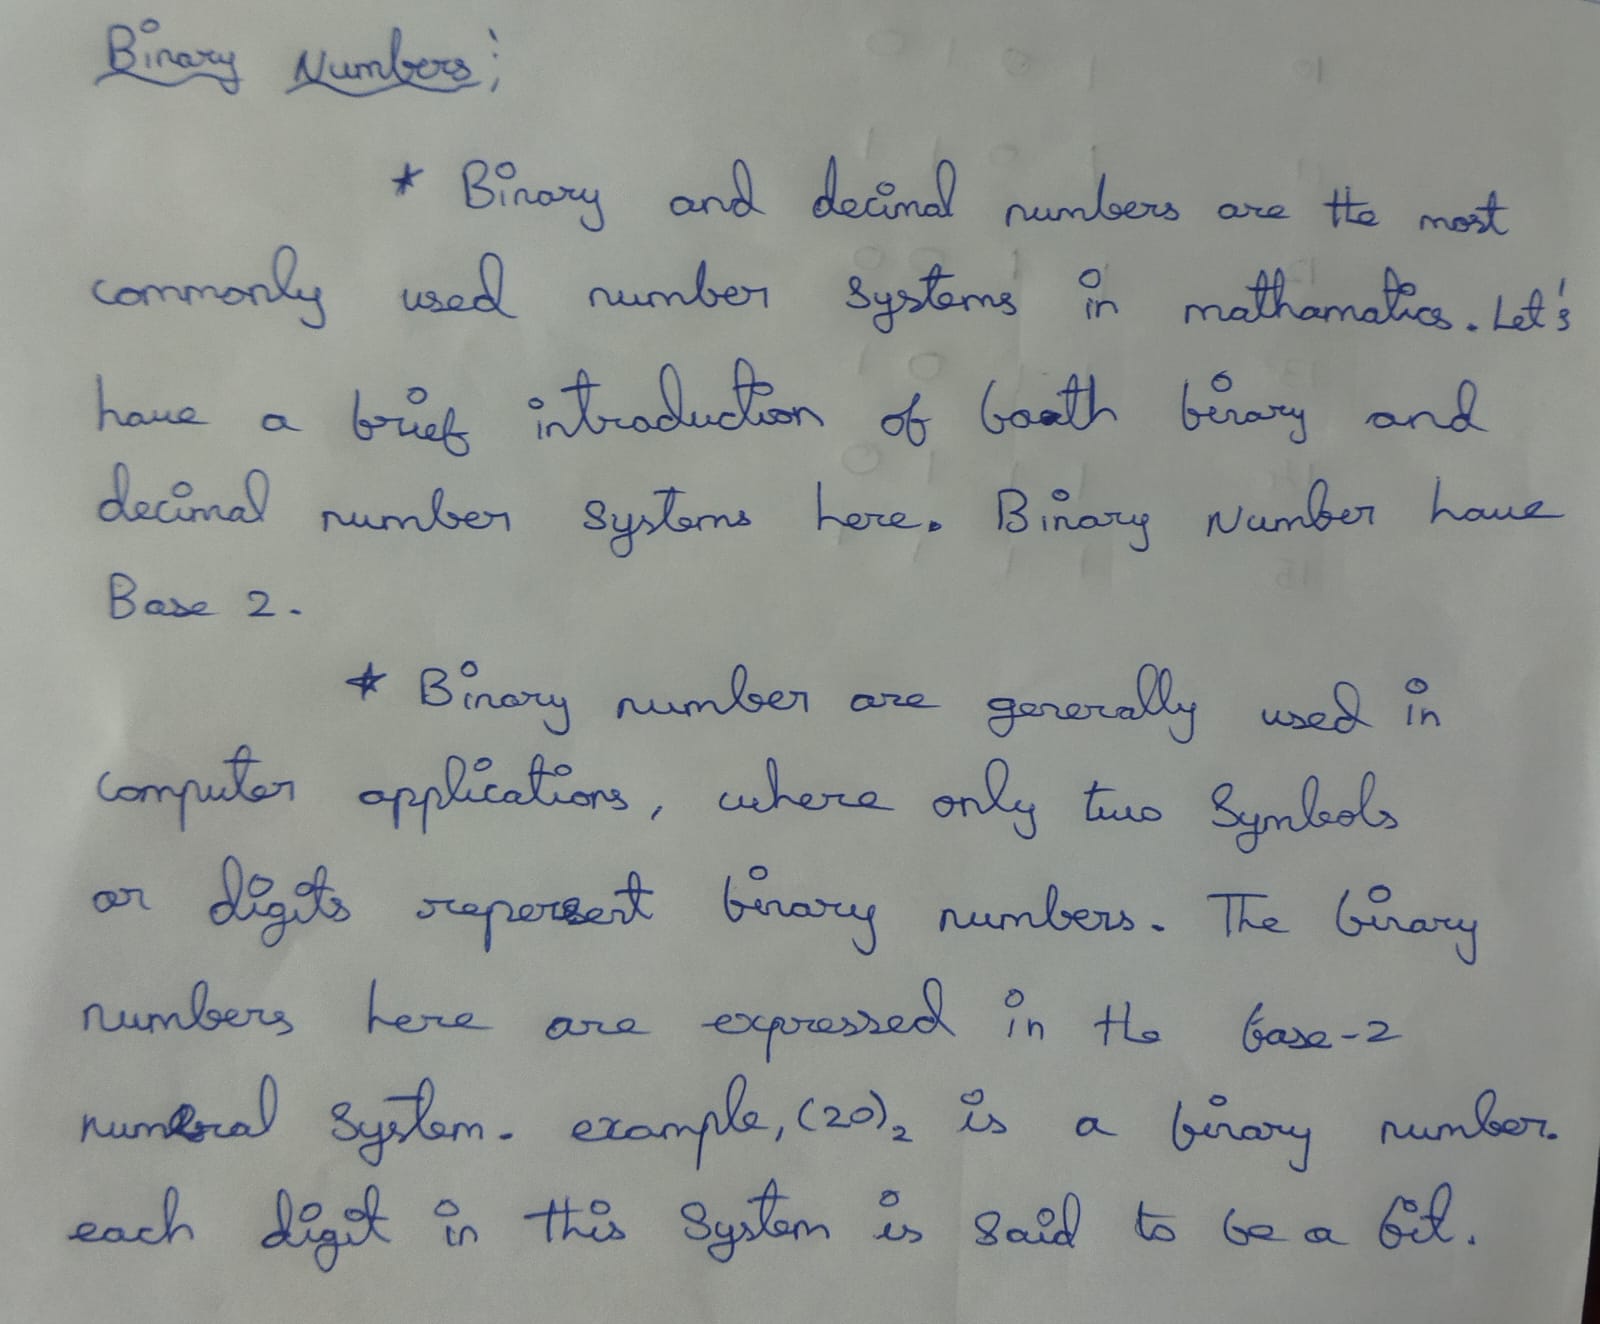 Binary Numbers:
* Binary and decimal numbers are the most
commonly used number systems in mathamatics. Let's
have a brief introduction of boath binary and
decimal number systems here. Binary Number have
Base 2.
* Binary number are generally used in
computer applications, where only two Symbols
or digits repersent binary numbers. The binary
numbers here are expressed in the base-2
numeral System. example, (20)₂ is a binary number.
each digit in this System is said to be a bit.